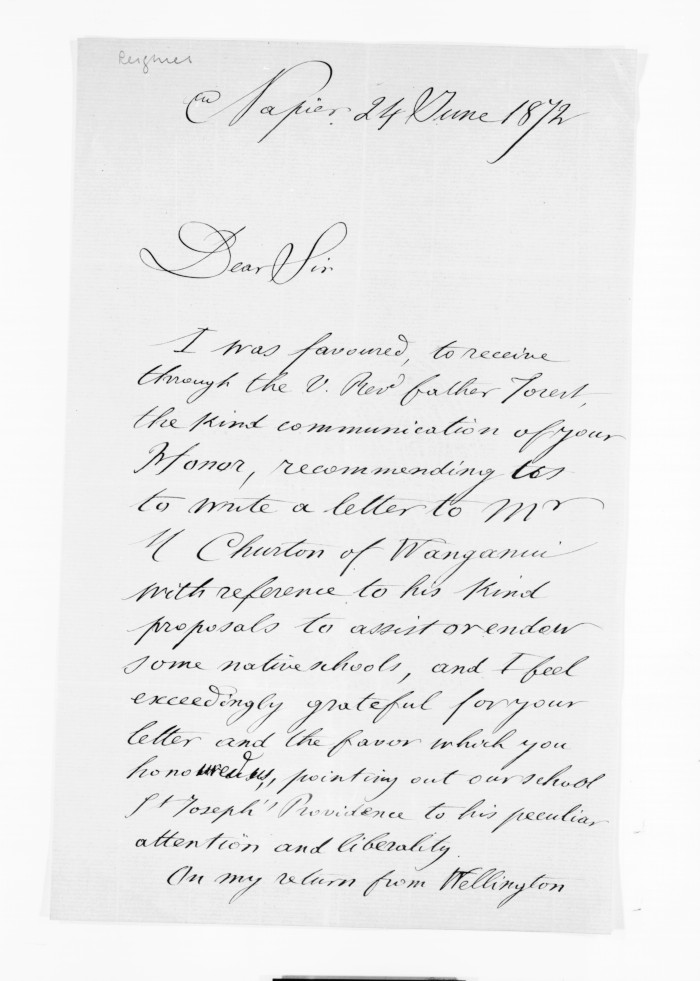 Reignier
Napier 24 June 1872
Dear Sir
I was favoured, to receive
through the V. Revd father Forest,
the kind communication of your
Honor, recommending us
to write a letter to Mr
H Churton of Wanganui
with reference to his kind
proposals to assist or endow
some native schools, and I feel
exceedingly grateful for your
letter and the favor which you
honoured us, pointing out our school
St Joseph's Providence to his peculiar
attention and liberality.
On my return from Wellington